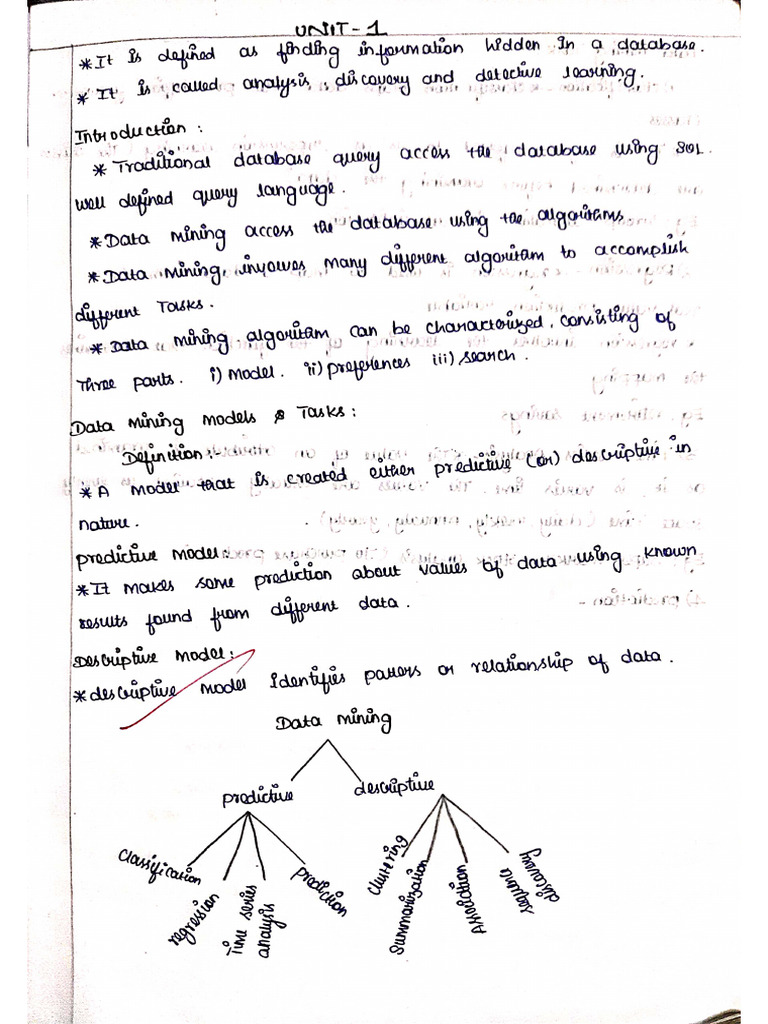 UNIT - 1
* It is defined as finding information hidden in a database.
* It is called analysis, discovery and detective learning.
Introduction :
* Traditional database query access the database using SQL
well defined query language.
* Data mining access the database using the algorithms.
* Data mining, involves many different algorithm to accomplish
different Tasks.
* Data mining algorithm can be characterized, consisting of
Three parts. i) model. ii) preferences iii) search.
Data mining models & Tasks :
Definition :-
* A model that is created either predictive (or) descriptive in
nature.
predictive model :
* It makes some prediction about values of data using known
results found from different data.
Descriptive model :
* descriptive model Identifies patters or relationship of data.
Data mining
predictive
descriptive
classification
regression
Time series
analysis
prediction
clustering
summarization
Association
discovery